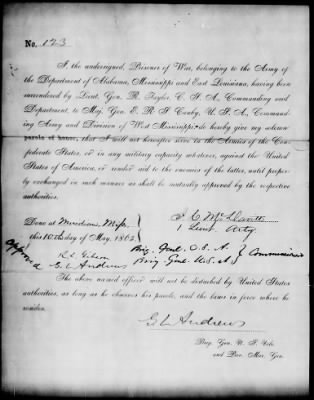 No. 123
I, the undersigned, Prisoner of War, belonging to the Army of
the Department of Alabama, Mississippi and East Louisiana, having been
surrendered by Lieut. Gen. R. Taylor, C. S. A., Commanding said
Department, to Maj. Gen. E. R. S. Canby, U. S. A., Command-
ing Army and Division of West Mississippi, do hereby give my solemn
parole of honor, that I will not hereafter serve in the Armies of the Con-
federate States, or in any military capacity whatever, against the United
States of America, or render aid to the enemies of the latter, until proper-
ly exchanged in such manner as shall be mutually approved by the respective
authorities.
Done at Meridian, Miss.
this 10th day of May, 1865.
1 Lieut. Arty.
Approved
R L Gibson Brig. Genl. C. S. A.
G. L. Andrews Brig Genl. U. S. A. } Commissioners
The above named officer will not be disturbed by United States
authorities, as long as he observes his parole, and the laws in force where he
resides.
G L Andrews
Brig. Gen. U. S. Vols.
and Pro. Mar. Gen.